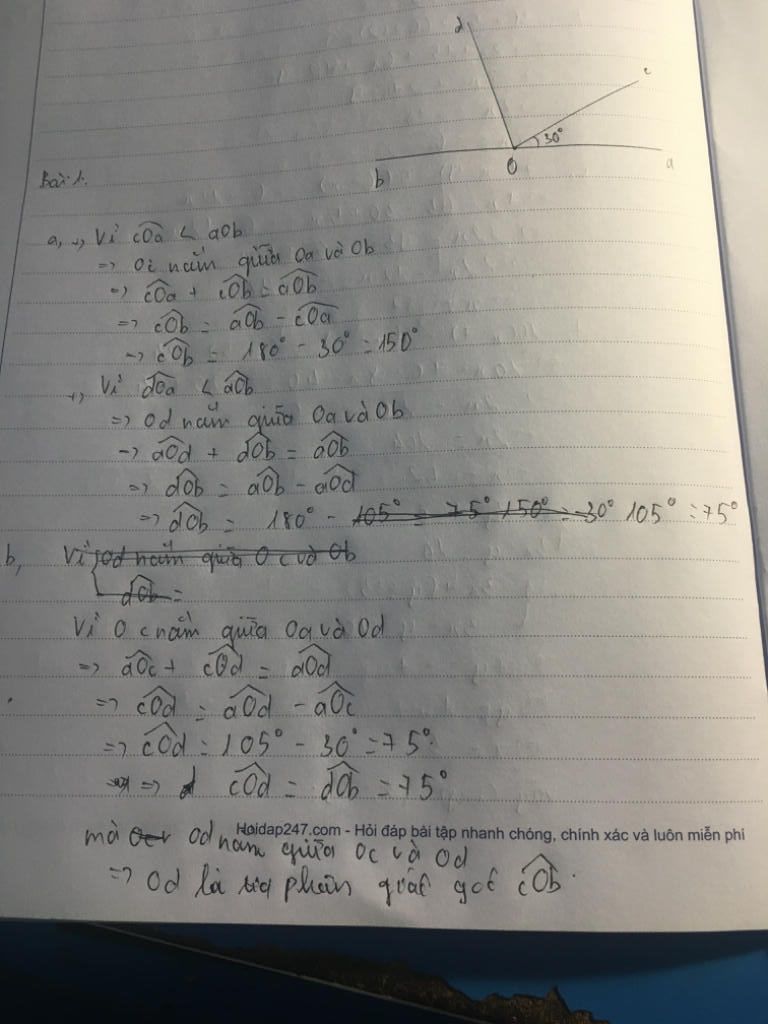 d
c
30°
b
O
a
Bài 1.
a, +, Vì cOa < aOb
=> Oc nằm giữa Oa và Ob
=> cOa + cOb = aOb
=> cOb = aOb - cOa
=> cOb = 180° - 30° = 150°
+, Vì dOa < aOb
=> Od nằm giữa Oa và Ob
=> aOd + dOb = aOb
=> dOb = aOb - aOd
=> dOb = 180° - 105° = 75° 150° = 30° 105° = 75°
b, Vì Od nằm giữa Oc và Ob
dOb =
Vì Oc nằm giữa Oa và Od
=> aOc + cOd = aOd
=> cOd = aOd - aOc
=> cOd = 105° - 30° = 75°
=> cOd = dOb = 75°
mà Od nằm giữa Oc và Od
Hoidap247.com - Hỏi đáp bài tập nhanh chóng, chính xác và luôn miễn phí
=> Od là tia phân giác góc cOb.